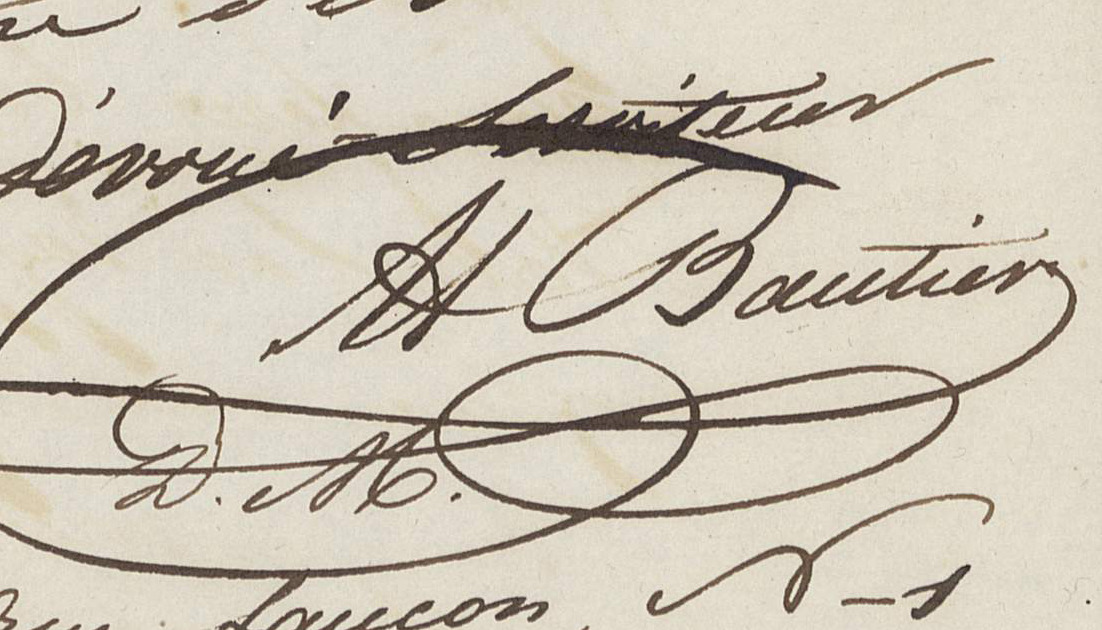 dévoué Serviteur
A Bautier
D. M.
Rue Saucon, N-1